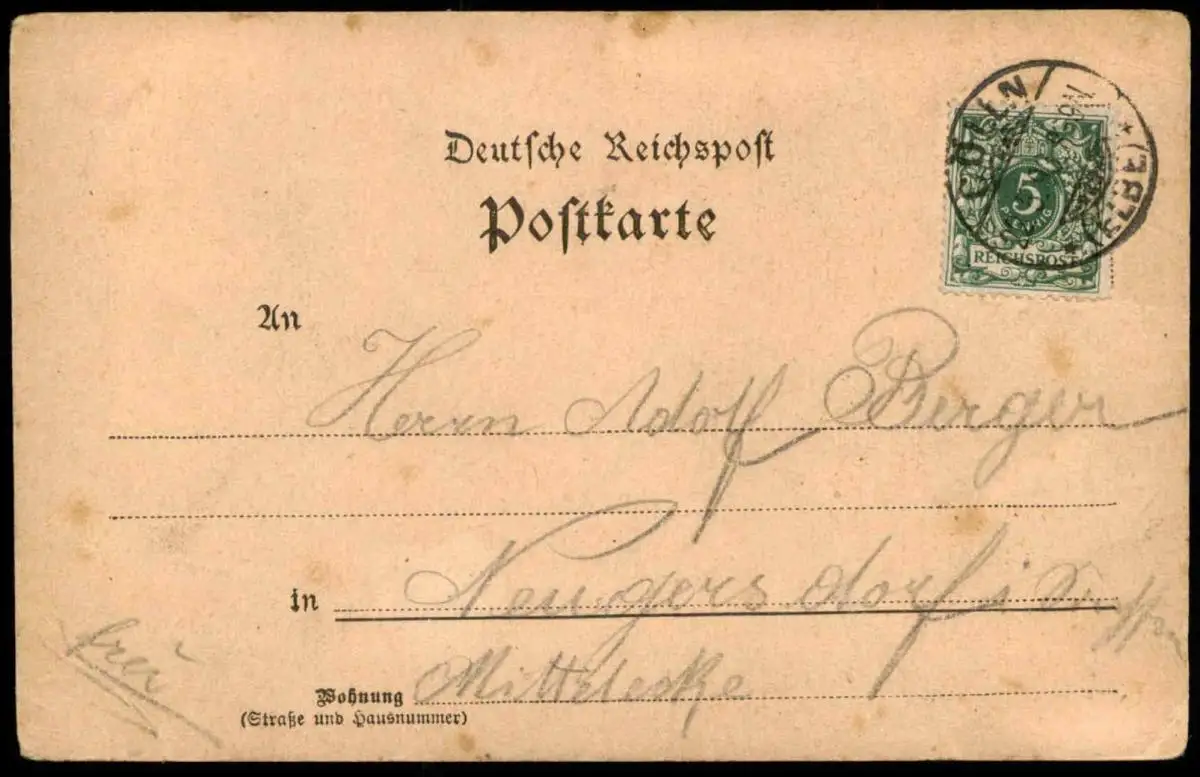 Deutsche Reichspost
Postkarte
CÖLLN
(ELBE)
5
PFENNIG
REICHSPOST
An
Herrn Adolf Berger
in Neugersdorf i Sachsen
frei
Wohnung Mittelecke
(Straße und Hausnummer)